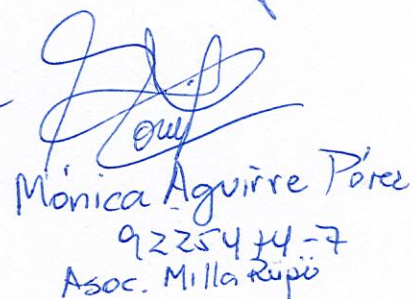 Mónica Aguirre Pérez
9225474-7
Asoc. Milla Rüpü